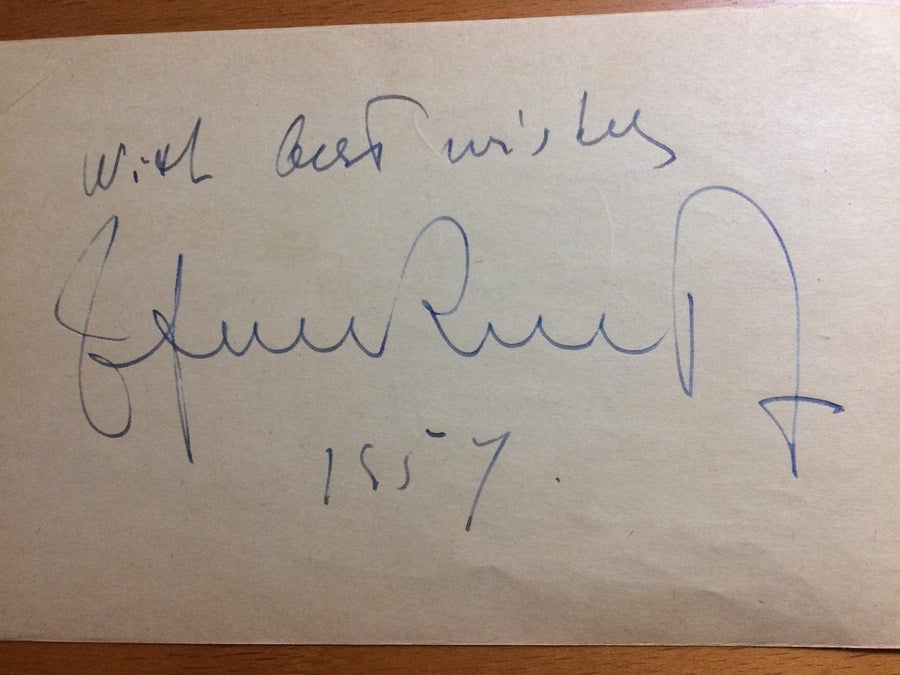 With best wishes
1957.